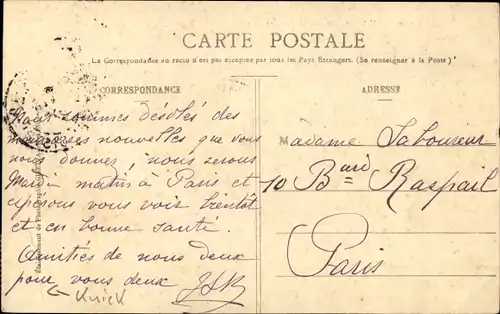 CARTE POSTALE
La Correspondance au recto n'est pas acceptée par tous les Pays Etrangers. (Se renseigner à la Poste)
CORRESPONDANCE
ADRESSE
Nous sommes désolés des
mauvaises nouvelles que vous
nous donnez, nous serons
Mardi matin à Paris et
espérons vous voir bientôt
et en bonne santé.
Amitiés de nous deux
pour vous deux
Madame Laboureur
10 Bard Raspail
Paris